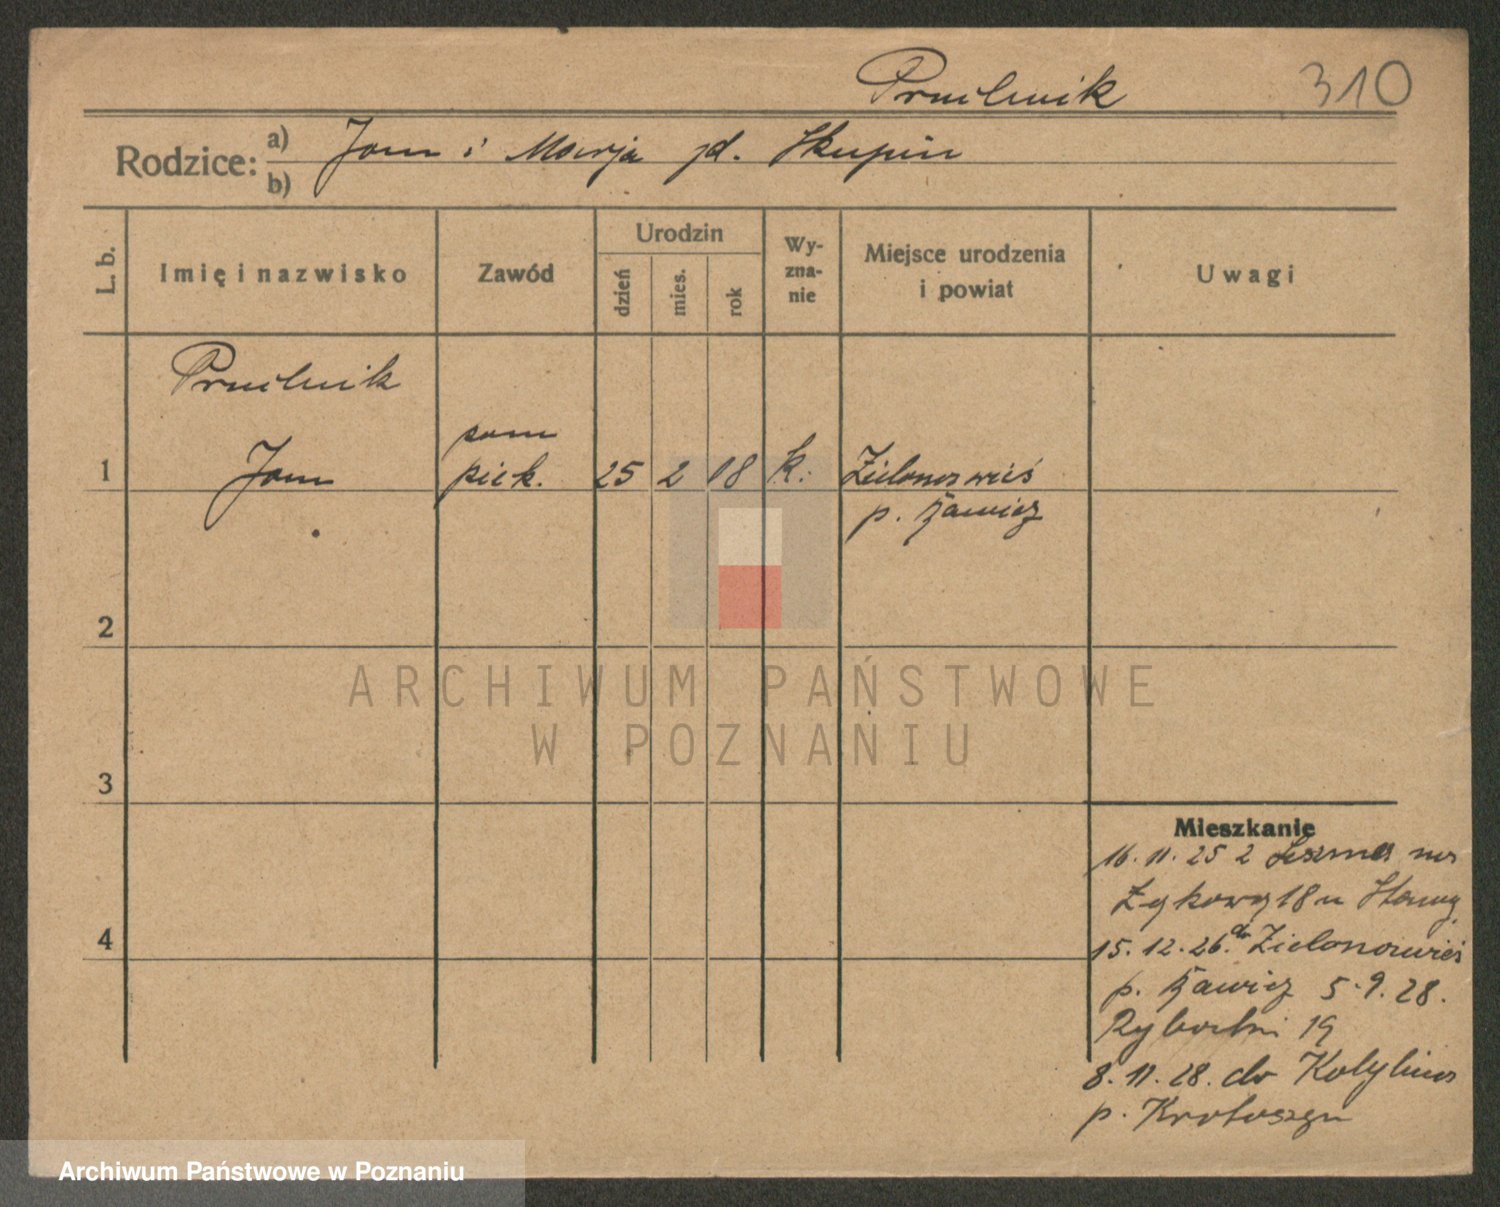 Prucilnik 310
Rodzice: a) Jan i Marja zd. Skupin
b)
L. b. Imię i nazwisko Zawód Urodzin dzień mies. rok Wyznanie Miejsce urodzenia i powiat Uwagi
Jan piek. 25 2 18 k. Zielonawieś
1
p. Rawicz
2
3
4
Mieszkanie
16. 11. 25 z Leszna na
18 u
15. 12. 26. do Zielonawieś
p. Rawicz 5. 9. 28.
19
8. 11. 28. do Kobylina
p. Krotoszyn
ARCHIWUM PAŃSTWOWE
W POZNANIU
Archiwum Państwowe w Poznaniu